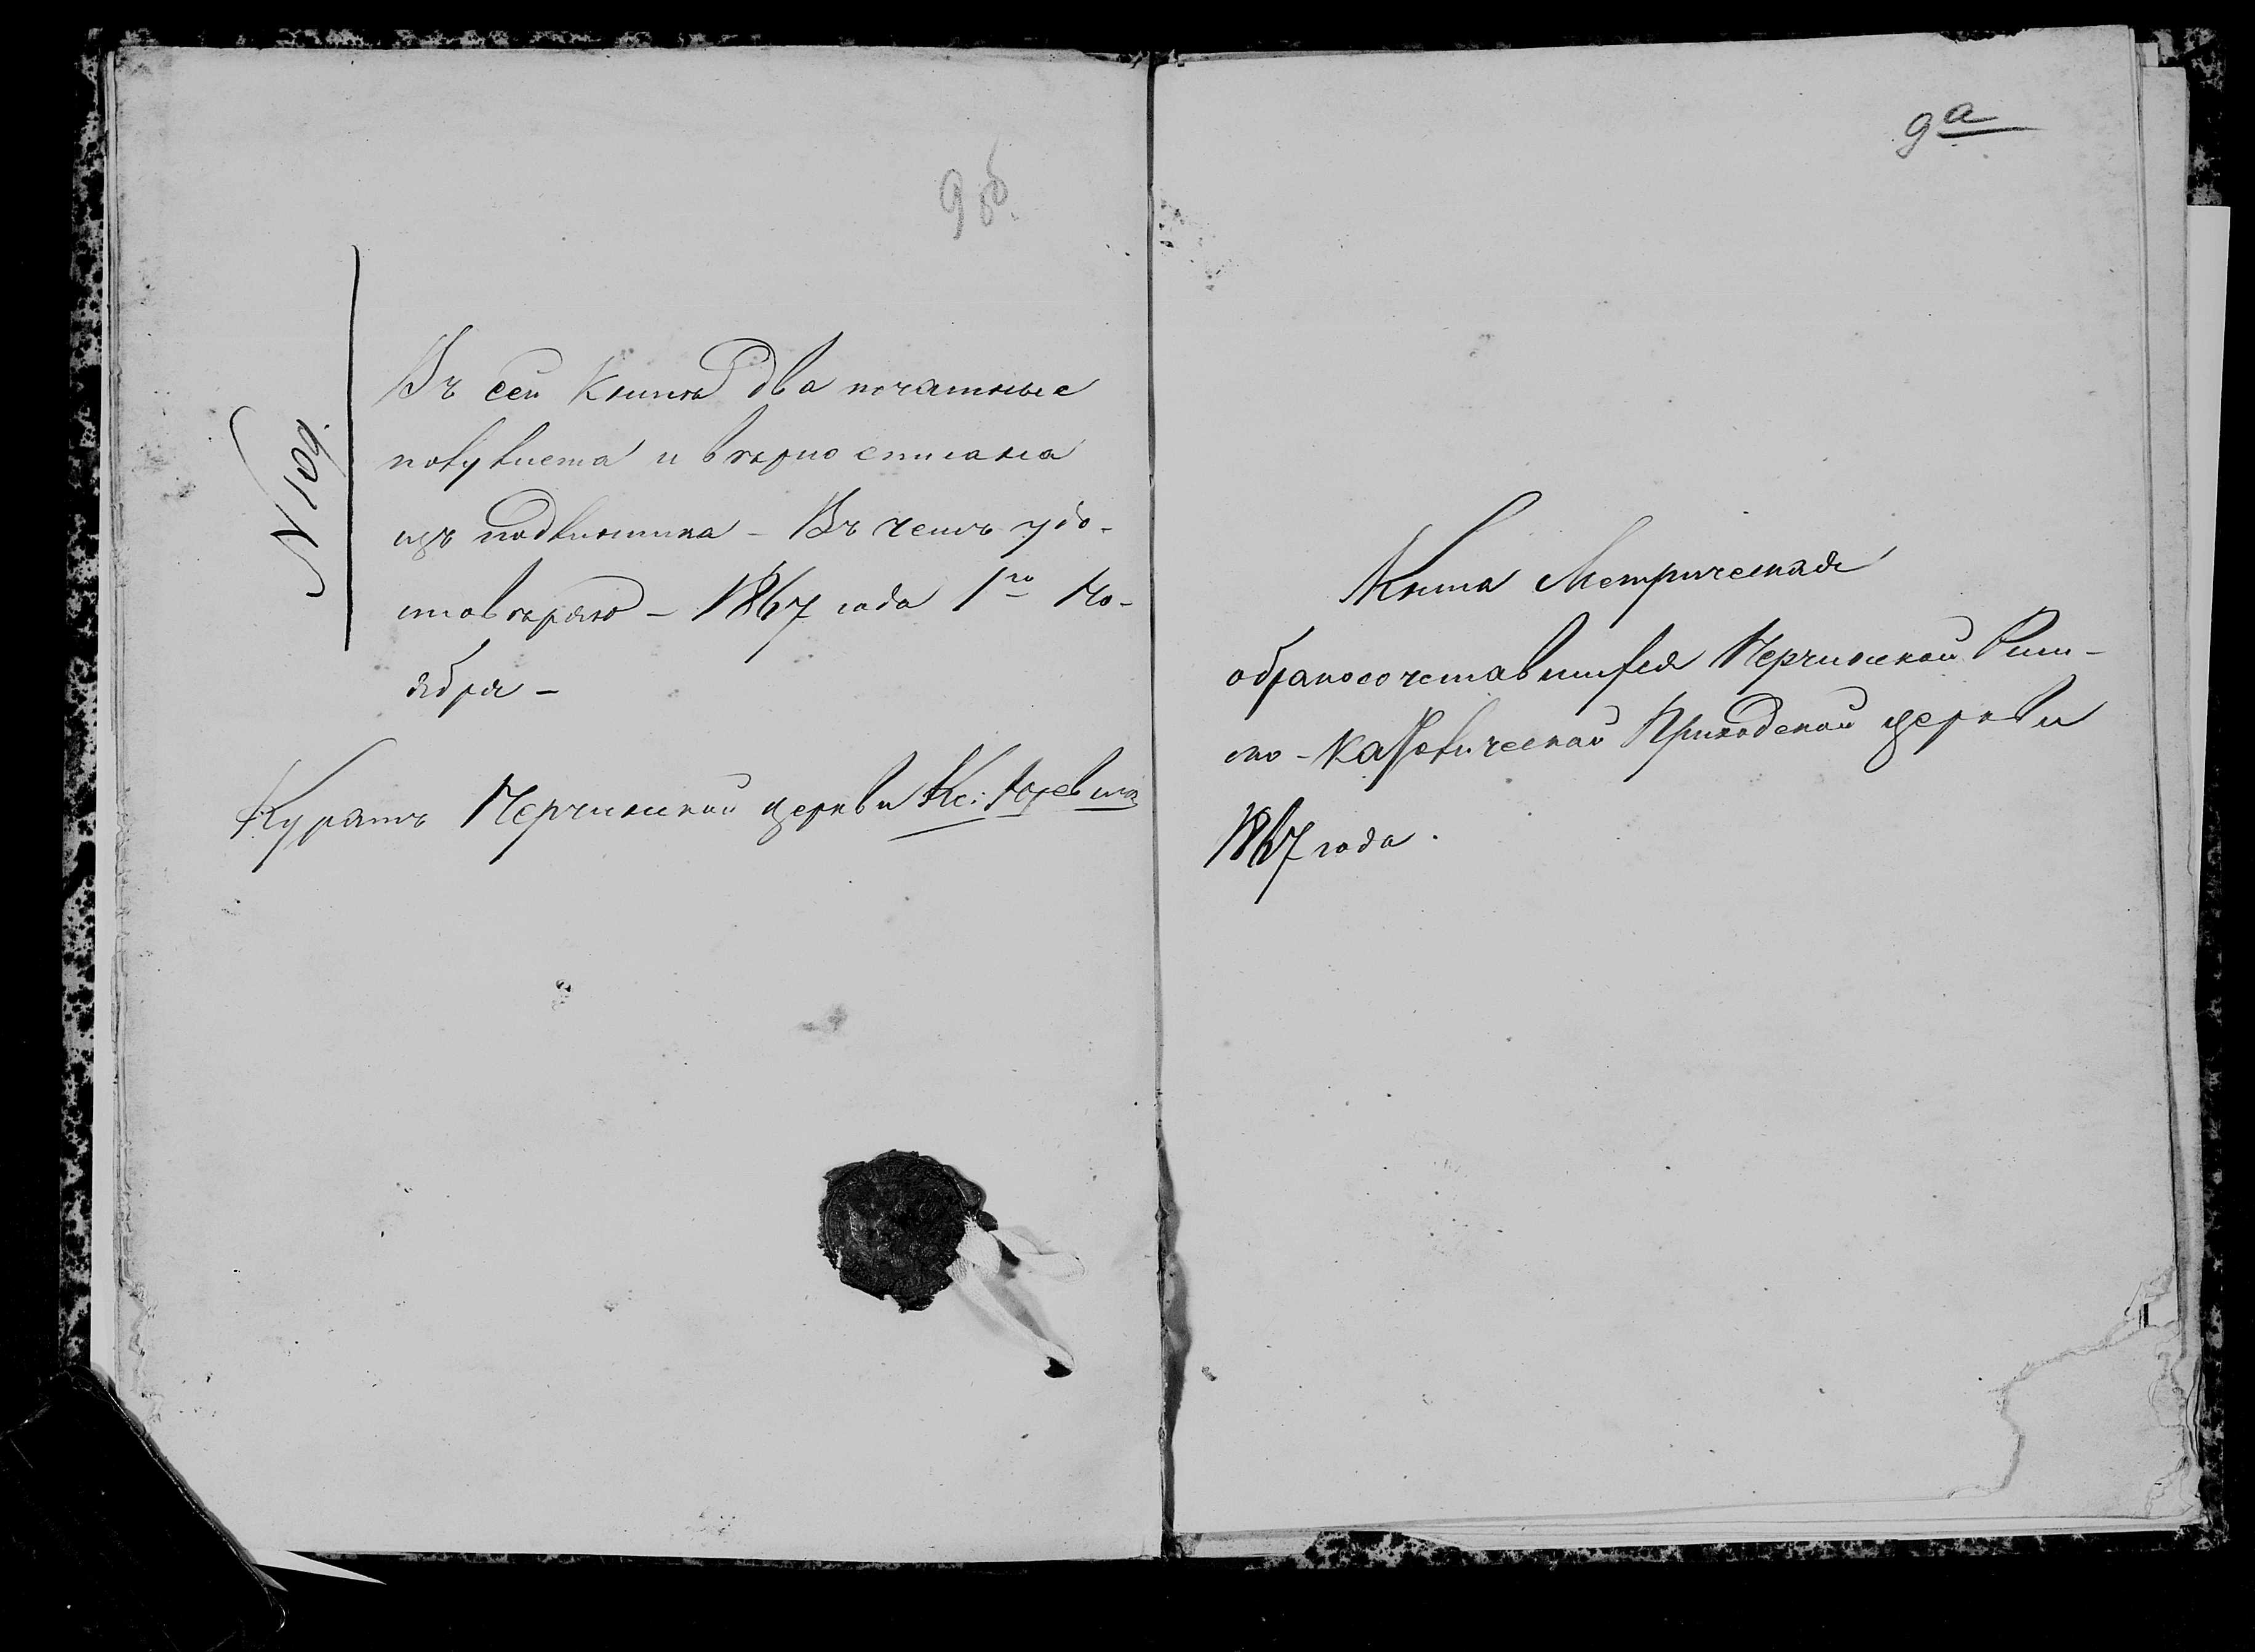 9об.
N 109.
Въ сей Книгѣ два печатные
полулиста и вѣрно списана
изъ подлинника – Въ чемъ удо-
стовѣряю – 1867 года 1го Но-
ября –
Куратъ церкви Кс:
9а
Книга Метрическая
о бракосочетавшихся Рим-
ско-Каѳолической Приходской церкви
1867 года.